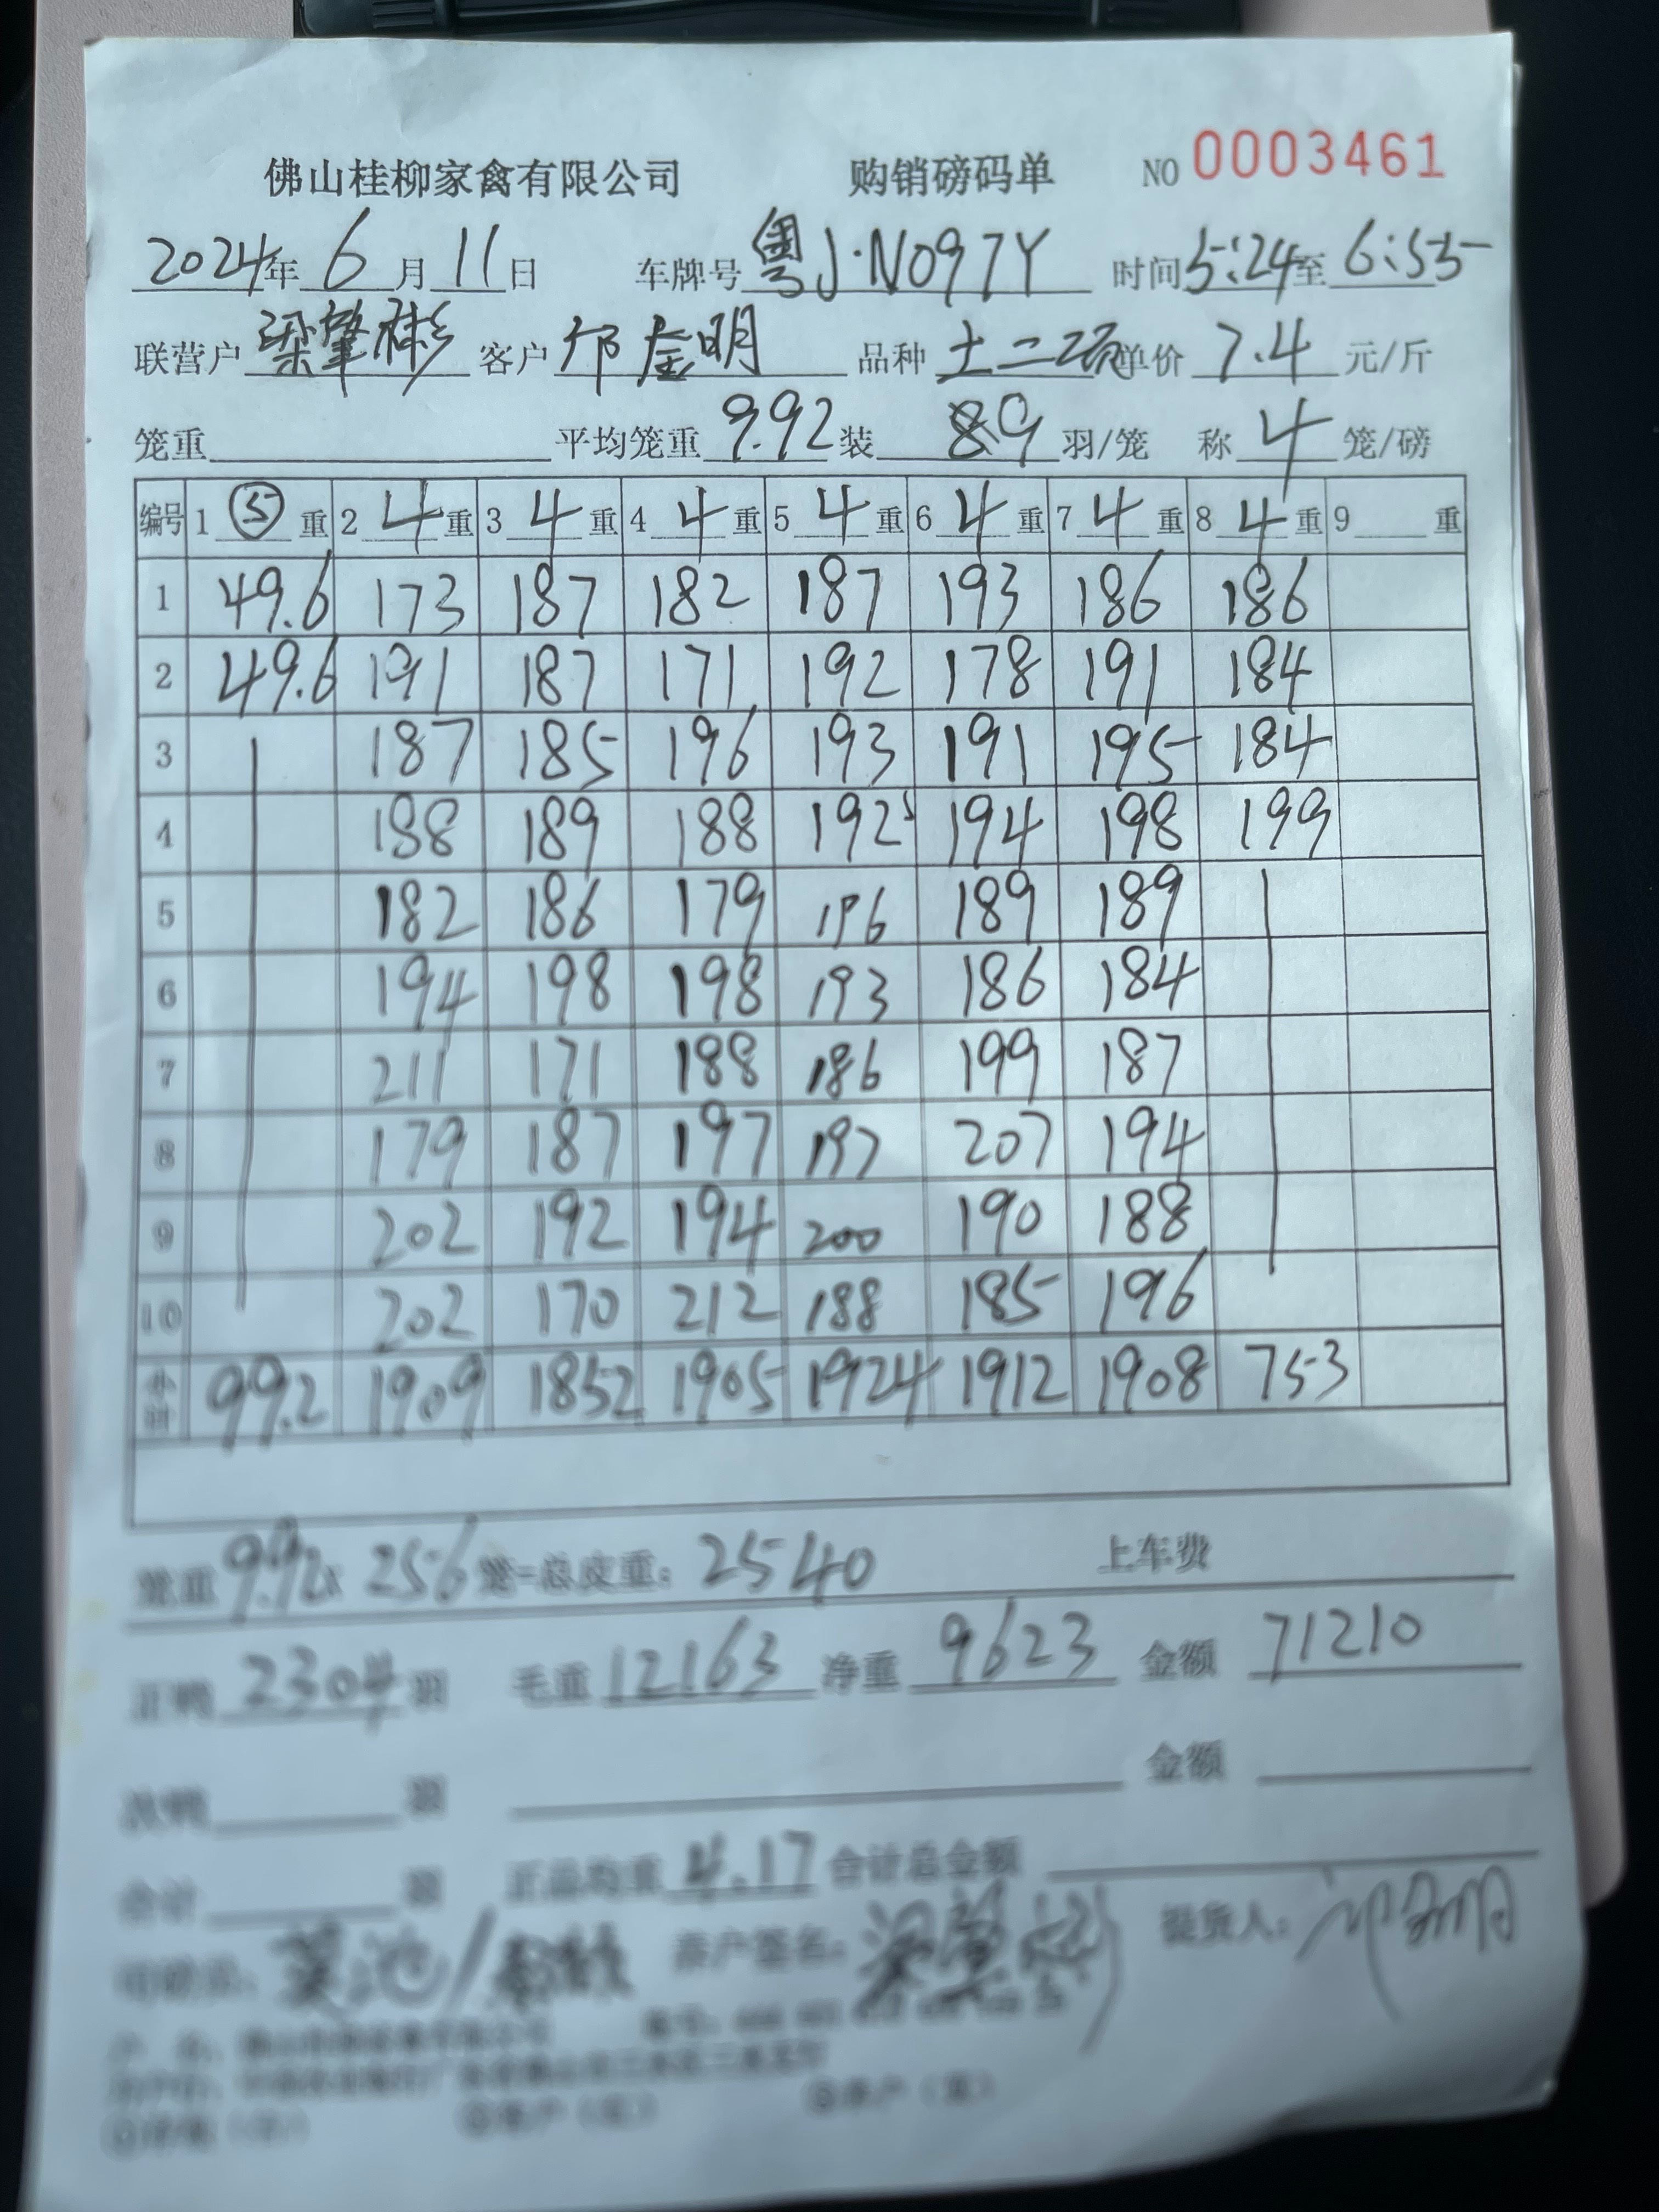 佛山桂柳家禽有限公司 购销磅码单 NO 0003461
2024年 6 月 11 日 车牌号 粤J·N097Y 时间 5:24 至 6:55
联营户 梁肇彬 客户 邝金明 品种 土二项 单价 7.4 元/斤
笼重 平均笼重 9.92 装 9 羽/笼 称 4 笼/磅
编号 1 ⑤ 重 2 4 重 3 4 重 4 4 重 5 4 重 6 4 重 7 4 重 8 4 重 9 重
1 49.6 173 187 182 187 193 186 186
2 49.6 191 187 171 192 178 191 184
3 187 185 196 193 191 195 184
4 188 189 188 192 194 198 199
5 182 186 179 196 189 189
6 194 198 198 193 186 184
7 211 171 188 186 199 187
8 179 187 197 197 207 194
9 202 192 194 200 190 188
10 202 170 212 188 185 196
小计 99.2 1909 1852 1905 1924 1912 1908 753
笼重 9.92x 256 笼=总皮重: 2540 上车费
正鸭 2304 羽 毛重 12163 净重 9623 金额 71210
次鸭 羽 金额
合计 羽 正品均重 4.17 合计总金额
司磅员: 农户签名: 梁肇彬 提货人: 邝金明